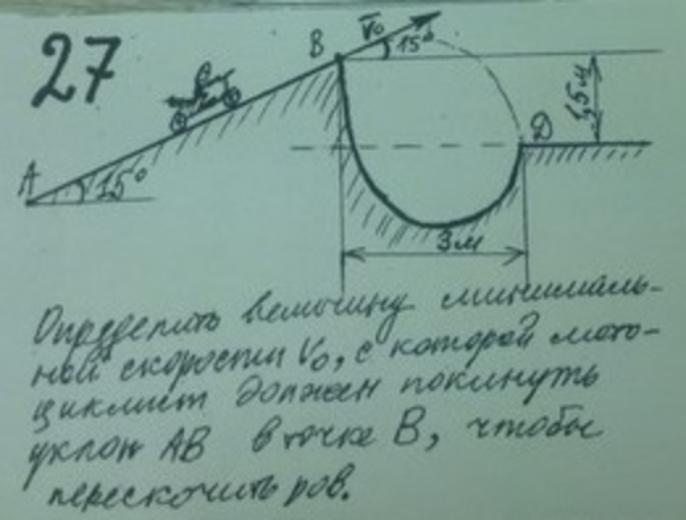 27
B
V₀
15°
C
1,5м
D
A
15°
3м
Определить величину минималь-
ной скорости V₀, с которой мото-
циклист должен покинуть
уклон AB в точке B, чтобы
перескочить ров.